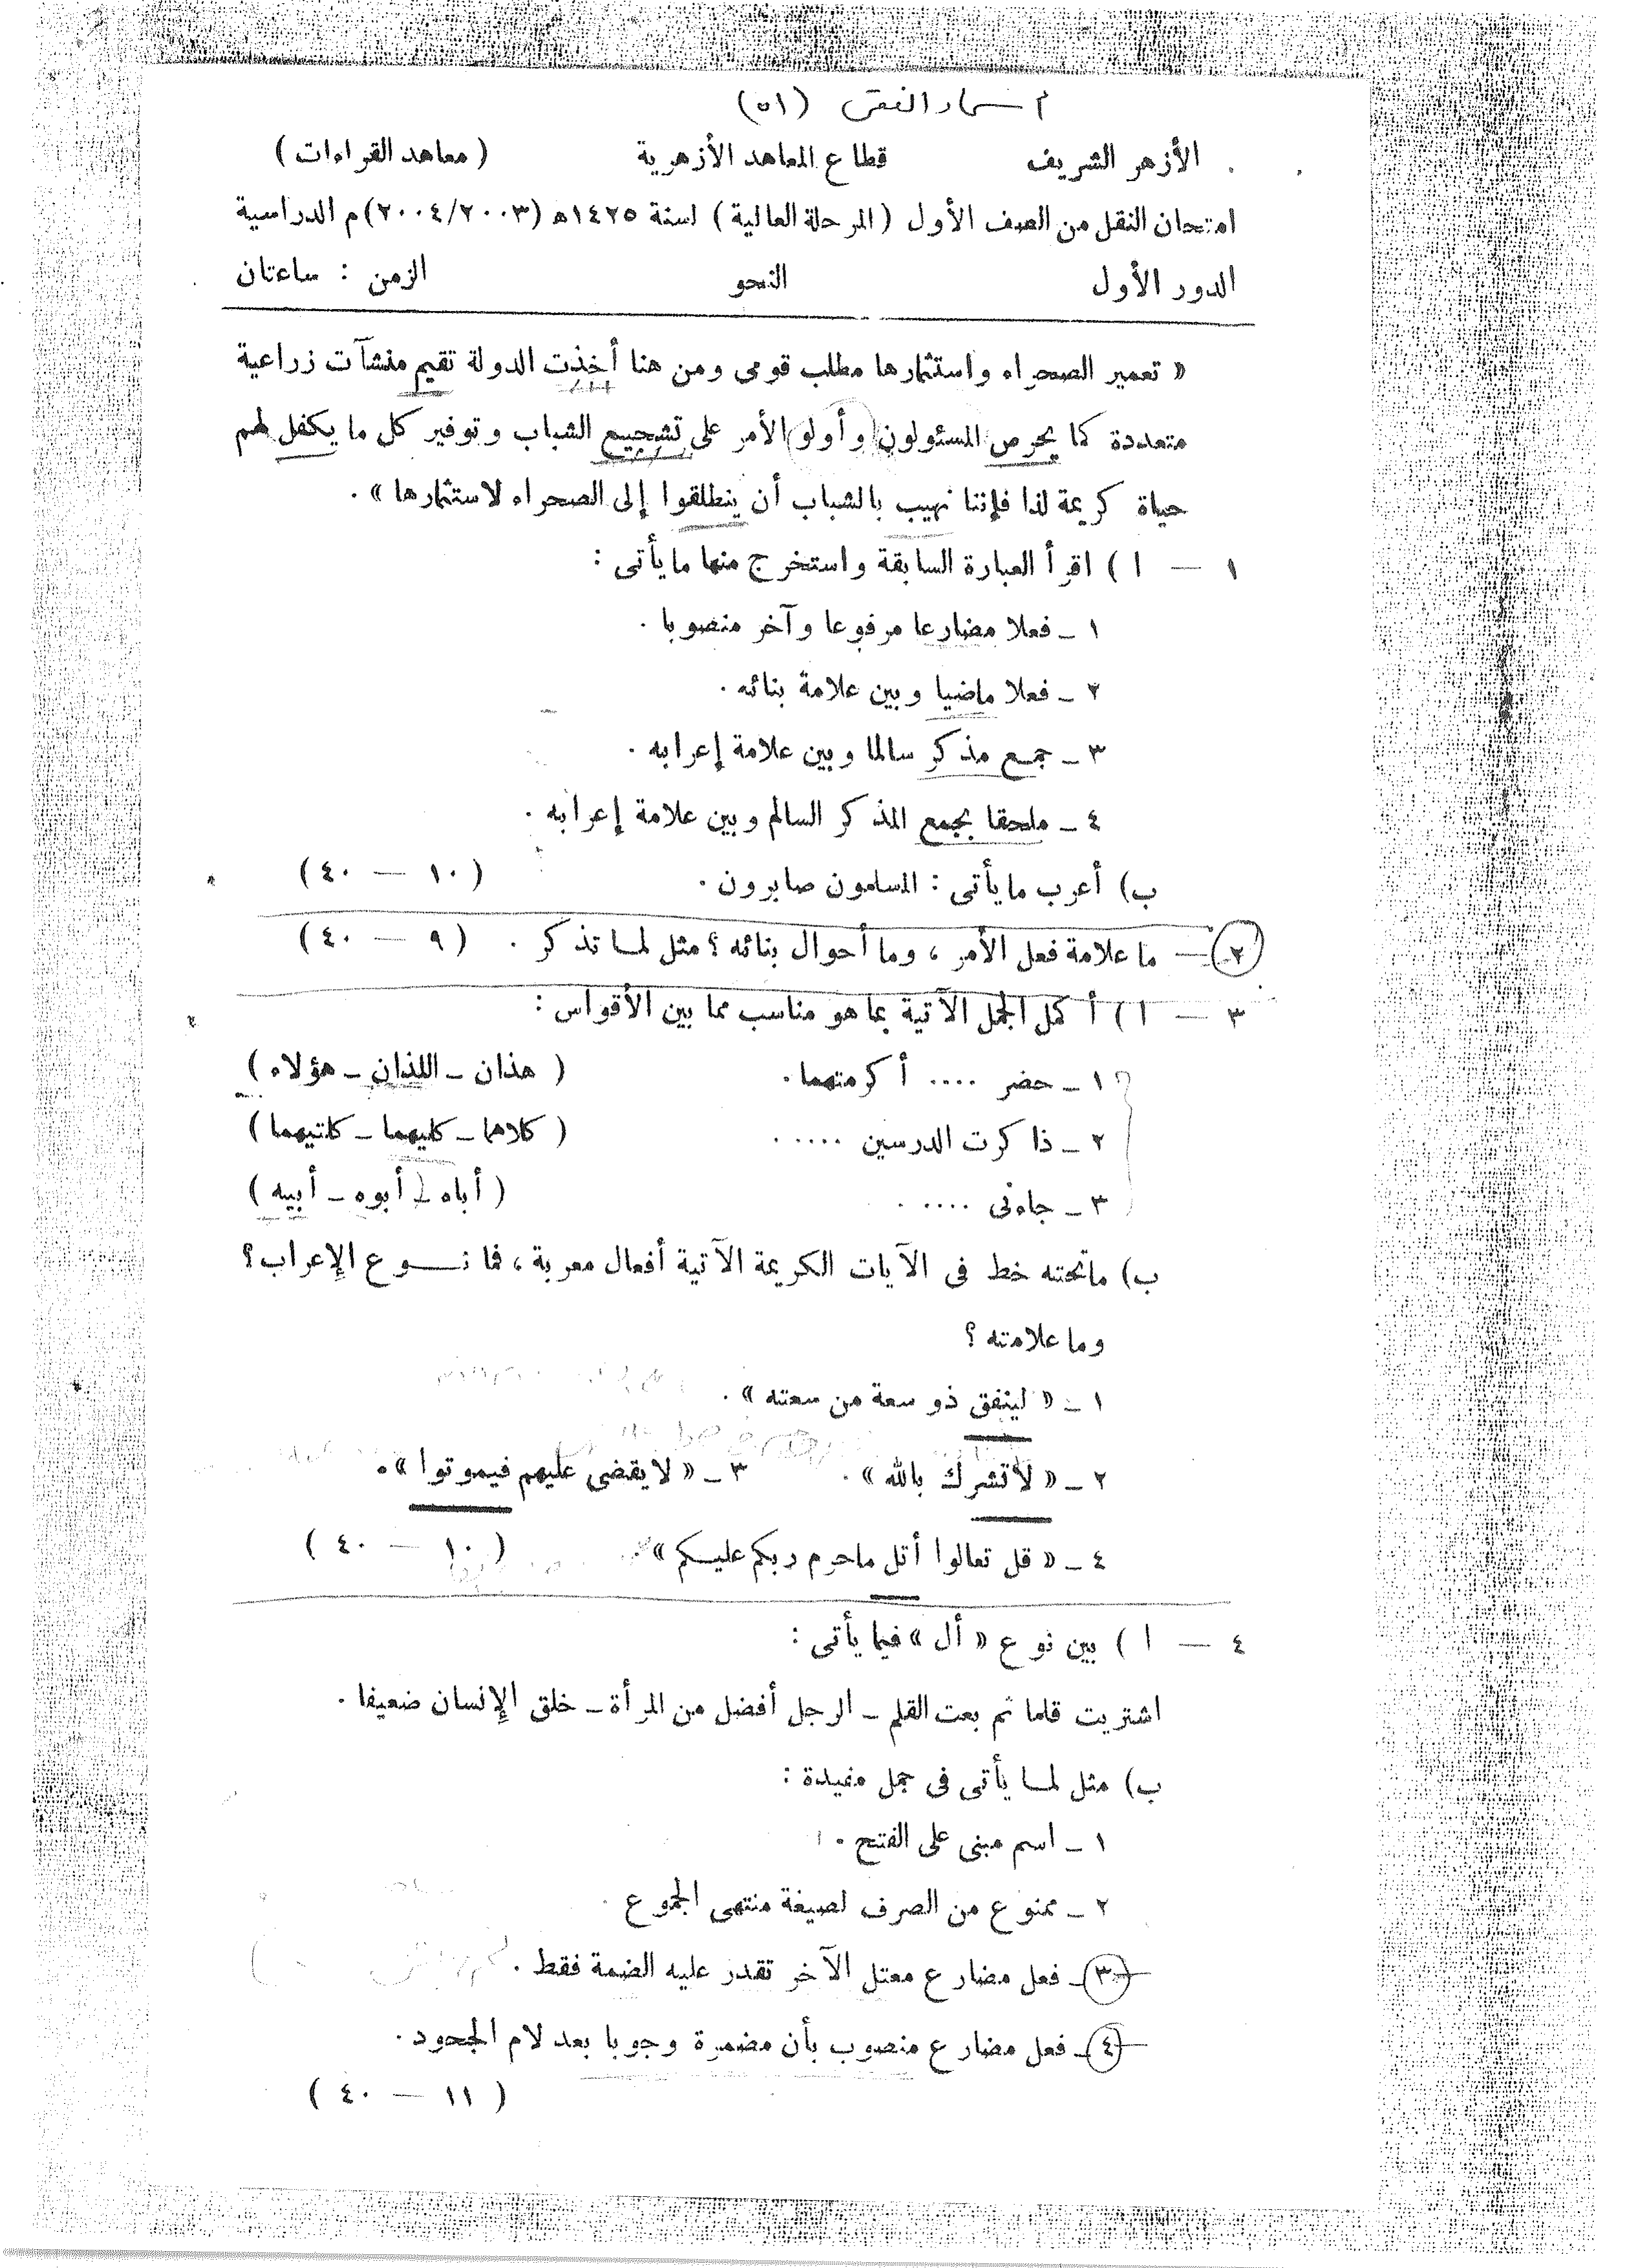 (٥١)
الأزهر الشريف قطاع المعاهد الأزهرية (معاهد القراءات)
امتحان النقل من الصف الأول (المرحلة العالية) لسنة ١٤٢٥ه (٢٠٠٤/٢٠٠٣)م الدراسية
الدور الأول النحو الزمن : ساعتان
« تعمير الصحراء واستثمارها مطلب قومى ومن هنا أخذت الدولة تقيم منشآت زراعية
متعددة كما يحرص المسئولون وأولو الأمر على تشجيع الشباب وتوفير كل ما يكفل لهم
حياة كريمة لذا فإننا نهيب بالشباب أن ينطلقوا إلى الصحراء لاستثمارها » .
١ — ا ) اقرأ العبارة السابقة واستخرج منها مايأتى :
١ ـ فعلا مضارعا مرفوعا وآخر منصوبا .
٢ ـ فعلا ماضيا وبين علامة بنائه .
٣ ـ جمع مذكر سالما وبين علامة إعرابه .
٤ ـ ملحقا بجمع المذكر السالم وبين علامة إعرابه .
ب) أعرب مايأتى : المسلمون صابرون . (١٠ — ٤٠)
٢ — ما علامة فعل الأمر ، وما أحوال بنائه ؟ مثل لما تذكر . (٩ — ٤٠)
٣ — ا ) أكمل الجمل الآتية بما هو مناسب مما بين الأقواس :
١ ـ حضر .... أكرمتهما . (هذان ـ اللذان ـ هؤلاء)
٢ ـ ذاكرت الدرسين ..... (كلاهما ـ كليهما ـ كلتيهما)
٣ ـ جاءنى .... . (أباه ـ أبوه ـ أبيه)
ب) ماتحته خط فى الآيات الكريمة الآتية أفعال معربة ، فما نوع الإعراب ؟
وما علامته ؟
١ ـ « لينفق ذو سعة من سعته » .
٢ ـ « لاتشرك بالله » . ٣ ـ « لا يقضى عليهم فيموتوا » .
٤ ـ « قل تعالوا أتل ماحرم ربكم عليكم » (١٠ — ٤٠)
٤ — ا ) بين نوع « أل » فيما يأتى :
اشتريت قلما ثم بعت القلم ـ الرجل أفضل من المرأة ـ خلق الإنسان ضعيفا .
ب) مثل لما يأتى فى جمل مفيدة :
١ ـ اسم مبنى على الفتح .
٢ ـ ممنوع من الصرف لصيغة منتهى الجموع .
٣ ـ فعل مضارع معتل الآخر تقدر عليه الضمة فقط .
٤ ـ فعل مضارع منصوب بأن مضمرة وجوبا بعد لام الجحود .
(١١ — ٤٠)